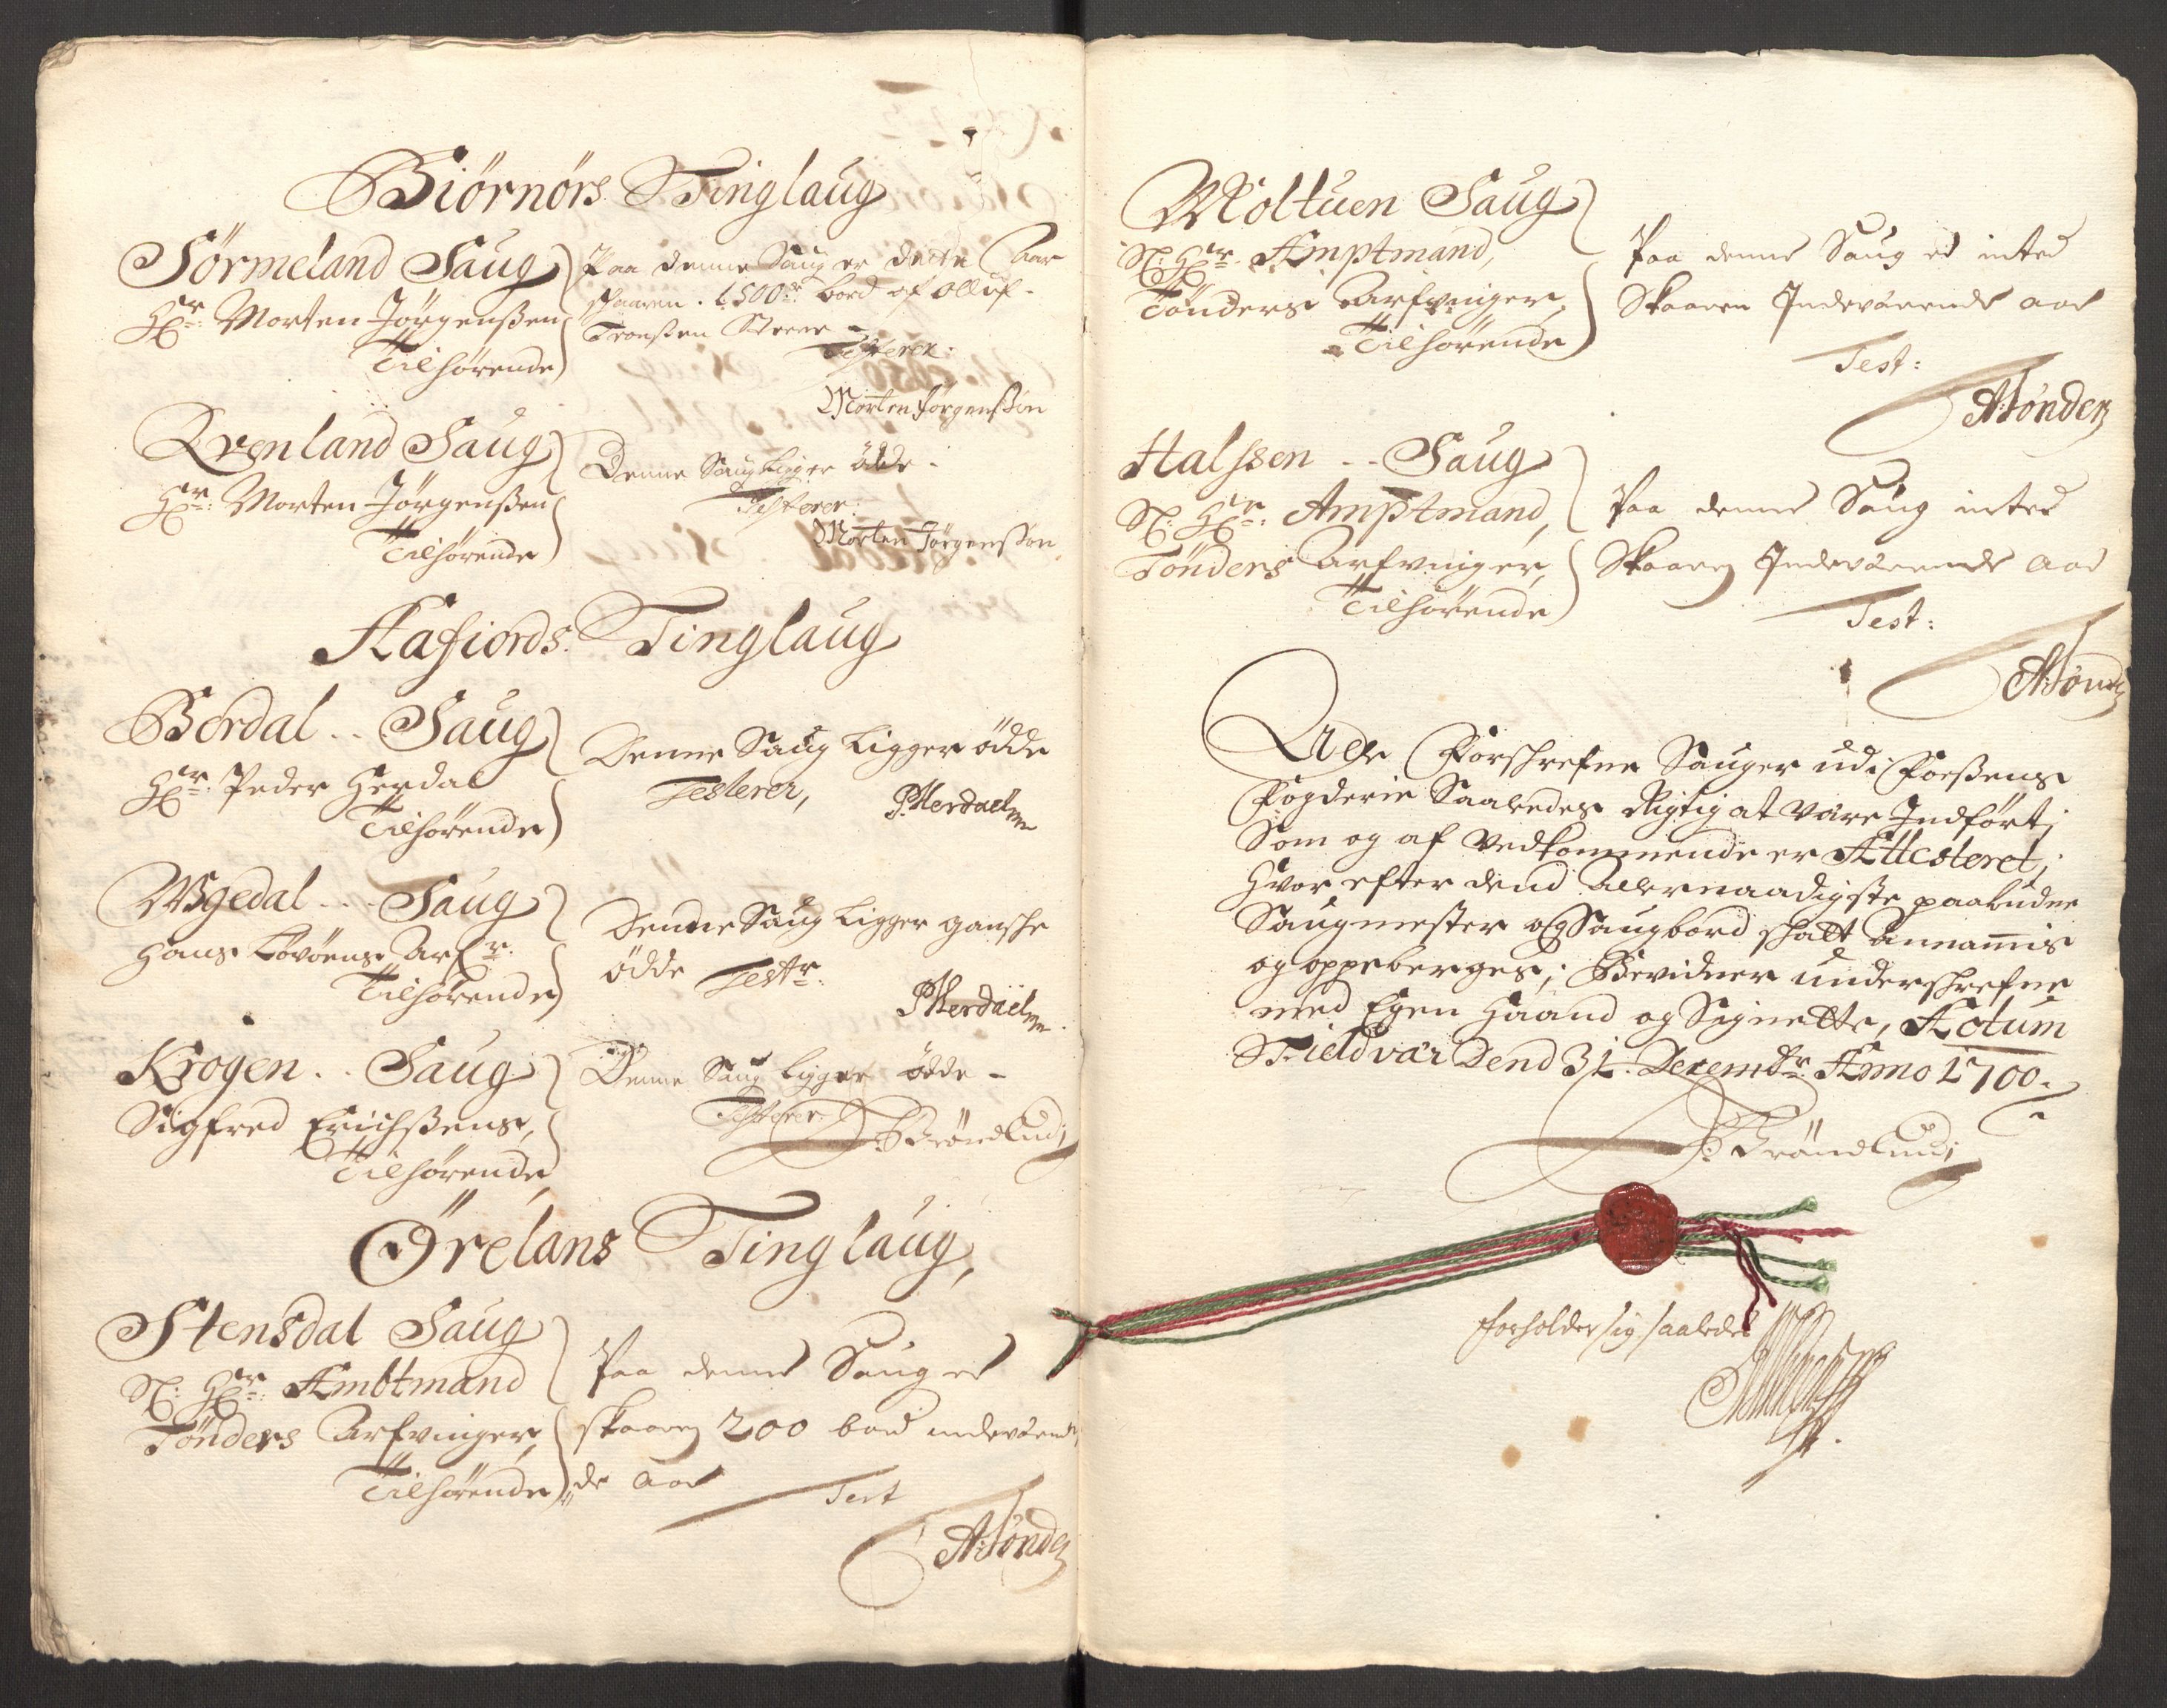 Biörnörs Tinglaug
Sörmeland Saug
Hr: Morten Jörgenßen
Tilhörende
Paa denne Saug er dette Aar
schaaren. 1500: bord af Olluf
Tronßen
Testerer
Morten Jörgenßøn
Qvenland Saug
Hr: Morten Jörgenßen
Tilhörende
Denne Saug Ligger ödde
Testerer
Morten Jörgenßøn
Aafiords Tinglaug
Bordal .. Saug
Hr: Peder Herdal
Tilhörende
Denne Saug Ligger ödde
Testerer,
P:Herdael
Saug
Hans Arfr:
Tilhörende
Denne Saug Ligger gansche
ödde Testr:
P:Herdael
Krogen .. Saug
Sigfred Erichßens,
Tilhörende
Denne Saug Ligger ödde -
Testerer
Bröndlund
Örelans Tinglaug,
Stensdal Saug
Sl: Hr: Ambtmand
Tönders Arfvinger,
Tilhörende
Paa denne Saug er
skaaren 200 bord indeværend
de Aar
Test
A:Tönder
Moltuen Saug
Sl: Hr: Amptmand,
Tönders Arfvinger,
Tilhörende
Paa denne Saug er inted
Skaaren Indeværende Aar
Test:
A:Tönder
Halssen .. Saug
Sl: Hr: Amptmand,
Tönders Arfvinger,
Tilhörende
Paa denne Saug inted
Skaaren Indeværende Aar
Test:
A:Tönder
Forschrefne Sauger udi Foeßens
Fogderie Saaledes Rigtig at være Indfört,
Som og af Vedkommende er Attesteret,
Hvor efter dend Allernaadigste paabudne
Saugmester og Saugbord schatt Annammis
og oppeberges; Bevidner underschrefne
med Egen Haand og Signette, Aotum
Tieldvar Dend 31. Decembr: Anno 1700.
Bröndlund
forholder sig saaledes